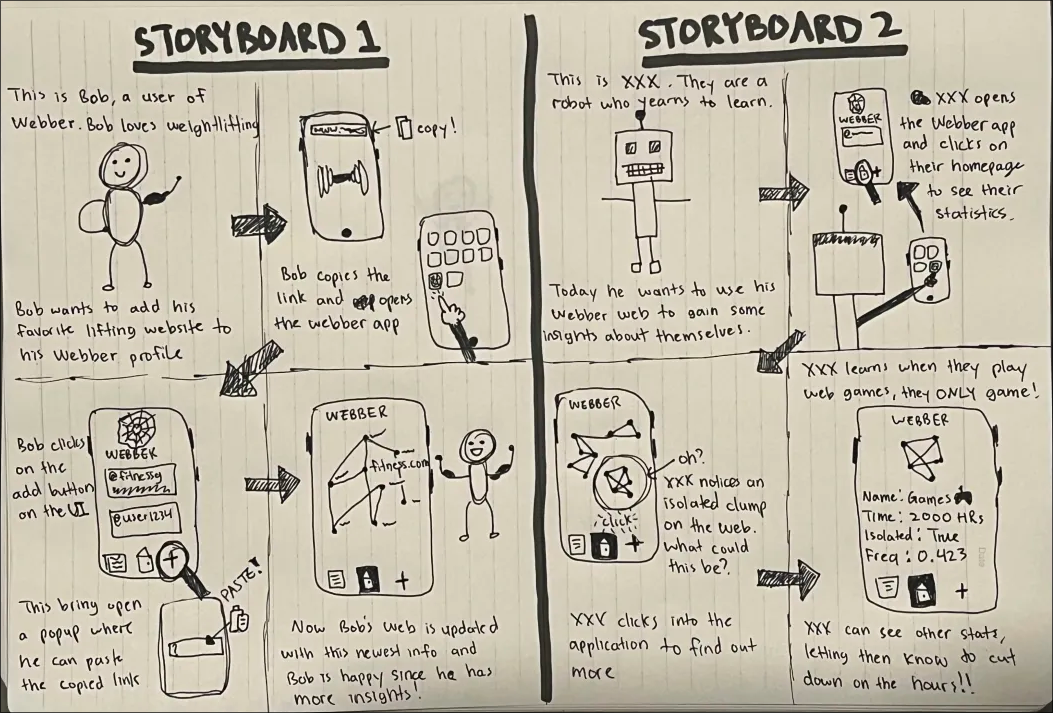 STORYBOARD 1
This is Bob, a user of
Webber. Bob loves weightlifting
Bob wants to add his
favorite lifting website to
his Webber profile
www.
copy!
Bob copies the
link and opens
the webber app
Bob clicks
on the
add button
on the UI
WEBBER
@fitnessy
@user1234
This bring open
a popup where
he can paste
the copied link
PASTE!
WEBBER
fitness.com
Now Bob's web is updated
with this newest info and
Bob is happy since he has
more insights!
STORYBOARD 2
This is XXX. They are a
robot who yearns to learn.
Today he wants to use his
Webber web to gain some
insights about themselves.
WEBBER
XXX opens
the Webber app
and clicks on
their homepage
to see their
statistics.
WEBBER
oh?
XXX notices an
isolated clump
on the web.
What could
this be?
click
XXX clicks into the
application to find out
more
XXX learns when they play
web games, they ONLY game!
WEBBER
Name: Games
Time: 2000 HRs
Isolated: True
Freq: 0.423
Date
XXX can see other stats,
letting then know to cut
down on the hours!!